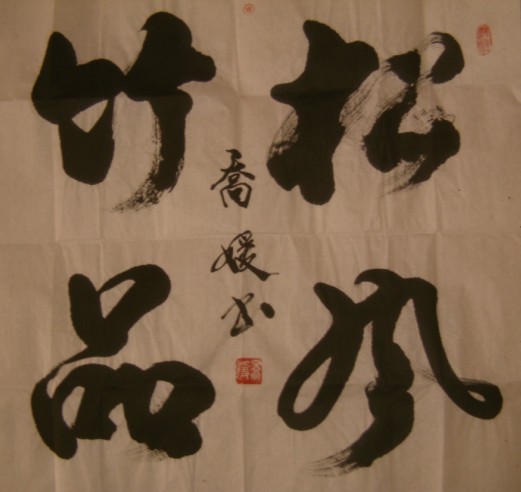 松风
竹品
喬媛书